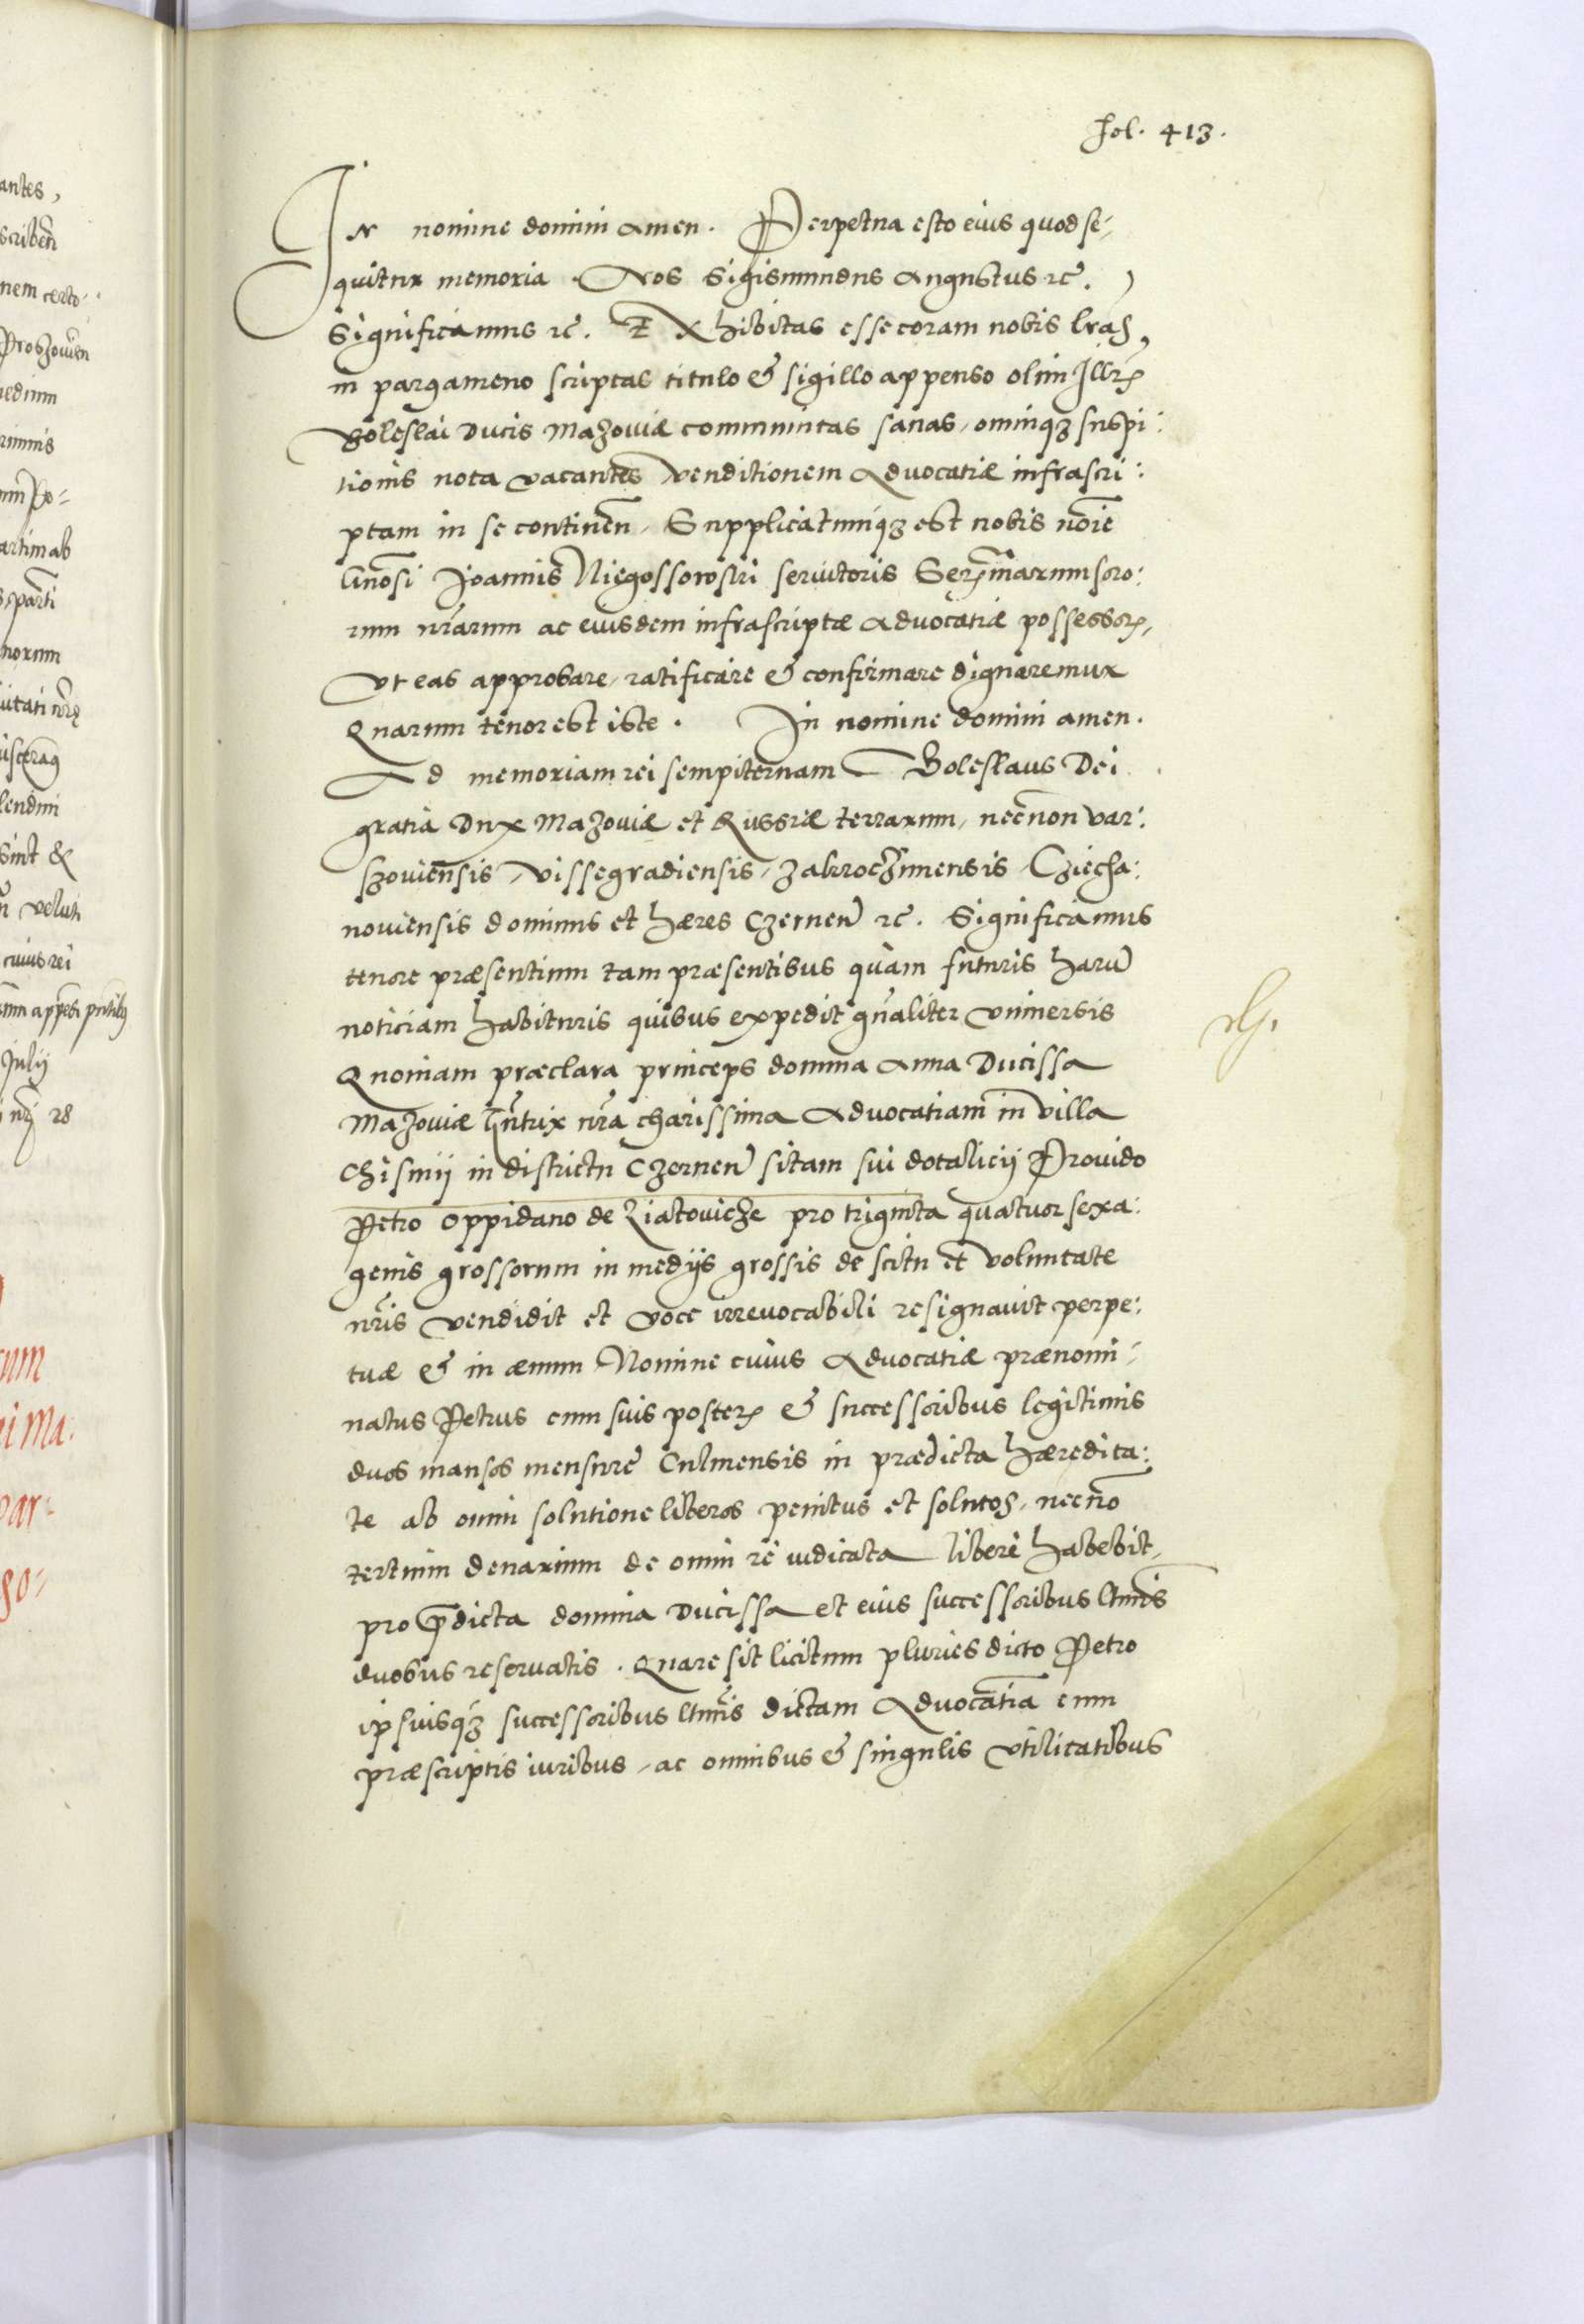 fol. 413.
In nomine domini amen. Perpetua esto eius quod se-
quitur memoria. Nos Sigismundus Augustus ꝛc.
Significamus ꝛc. Exhibitas esse coram nobis lr̃as,
in pargameno scriptas titulo & sigillo appenso olim Illr̃
Boleslai Ducis Mazoviæ communitas sanas, omniqʒ suspi:
tionis nota vacantes venditionem Advocatiæ infrascri:
ptam in se continen̄, Supplicatumqʒ est nobis noīe
Gnōsi Joannis servitoris Serꝫm̄arum soro:
rum nr̃arum ac eiusdem infrascriptæ Advocatiæ possessorꝫ,
Vt eas approbare, ratificare & confirmare dignaremur
Quarum tenor est iste. In nomine domini amen.
Ad memoriam rei sempiternam Boleslaus Dei
gratia Dux Mazoviæ et Russiæ terrarum, necnon Var:
szoviensis, Vissegradiensis, Zakroczimensis Cziecha:
noviensis dominus et hæres Czernen̄ ꝛc. Significamus
tenore præsentium tam præsentibus quàm futuris harū
noticiam habituris quibus expedit gn̄aliter Vniversis
Quoniam præclara princeps domina Anna Ducissa
Mazoviæ Gn̄trix nr̃a charissima Advocatiam in villa
Chismij in districtu Czernen̄ sitam sui dotalicij Provido
Petro oppidano de Ziatovicze pro triginta quatuor sexa:
genis grossorum in medijs grossis de scitu et voluntate
nr̃is vendidit et voce irrevocabili resignavit perpe:
tuæ & in ævum Nomine cuius Advocatiæ prænomi-
natus Petrus cum suis posterꝫ & successoribus legitimis
duos mansos mensuræ Culmensis in prædicta hæredita:
te ab omni solutione liberos penitus et solutos, necnō
tertium denarium de omni re iudicata liberè habebit,
pro p̄dicta domina Ducissa et eius successoribus ltm̄is
duobus reservatis. Quare sit licitum pluries dicto Petro
ipsiusqʒ successoribus ltm̄is dictam Advocatiā cum
præscriptis iuribus, ac omnibus & singulis vtilitatibus